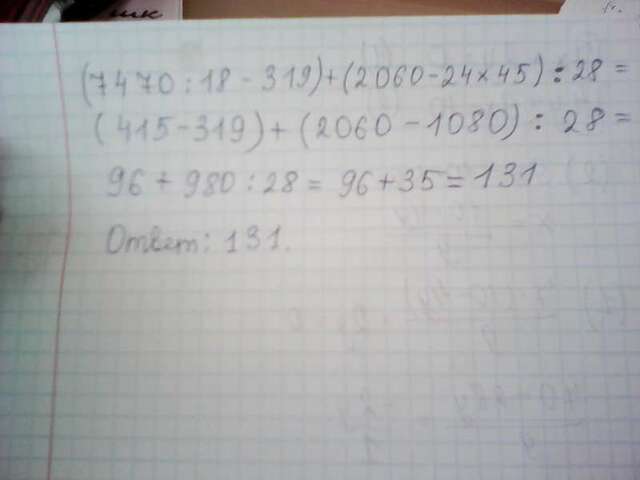 (7470:18-319)+(2060-24×45):28=
(415-319)+(2060-1080):28=
96+980:28=96+35=131
Ответ: 131.